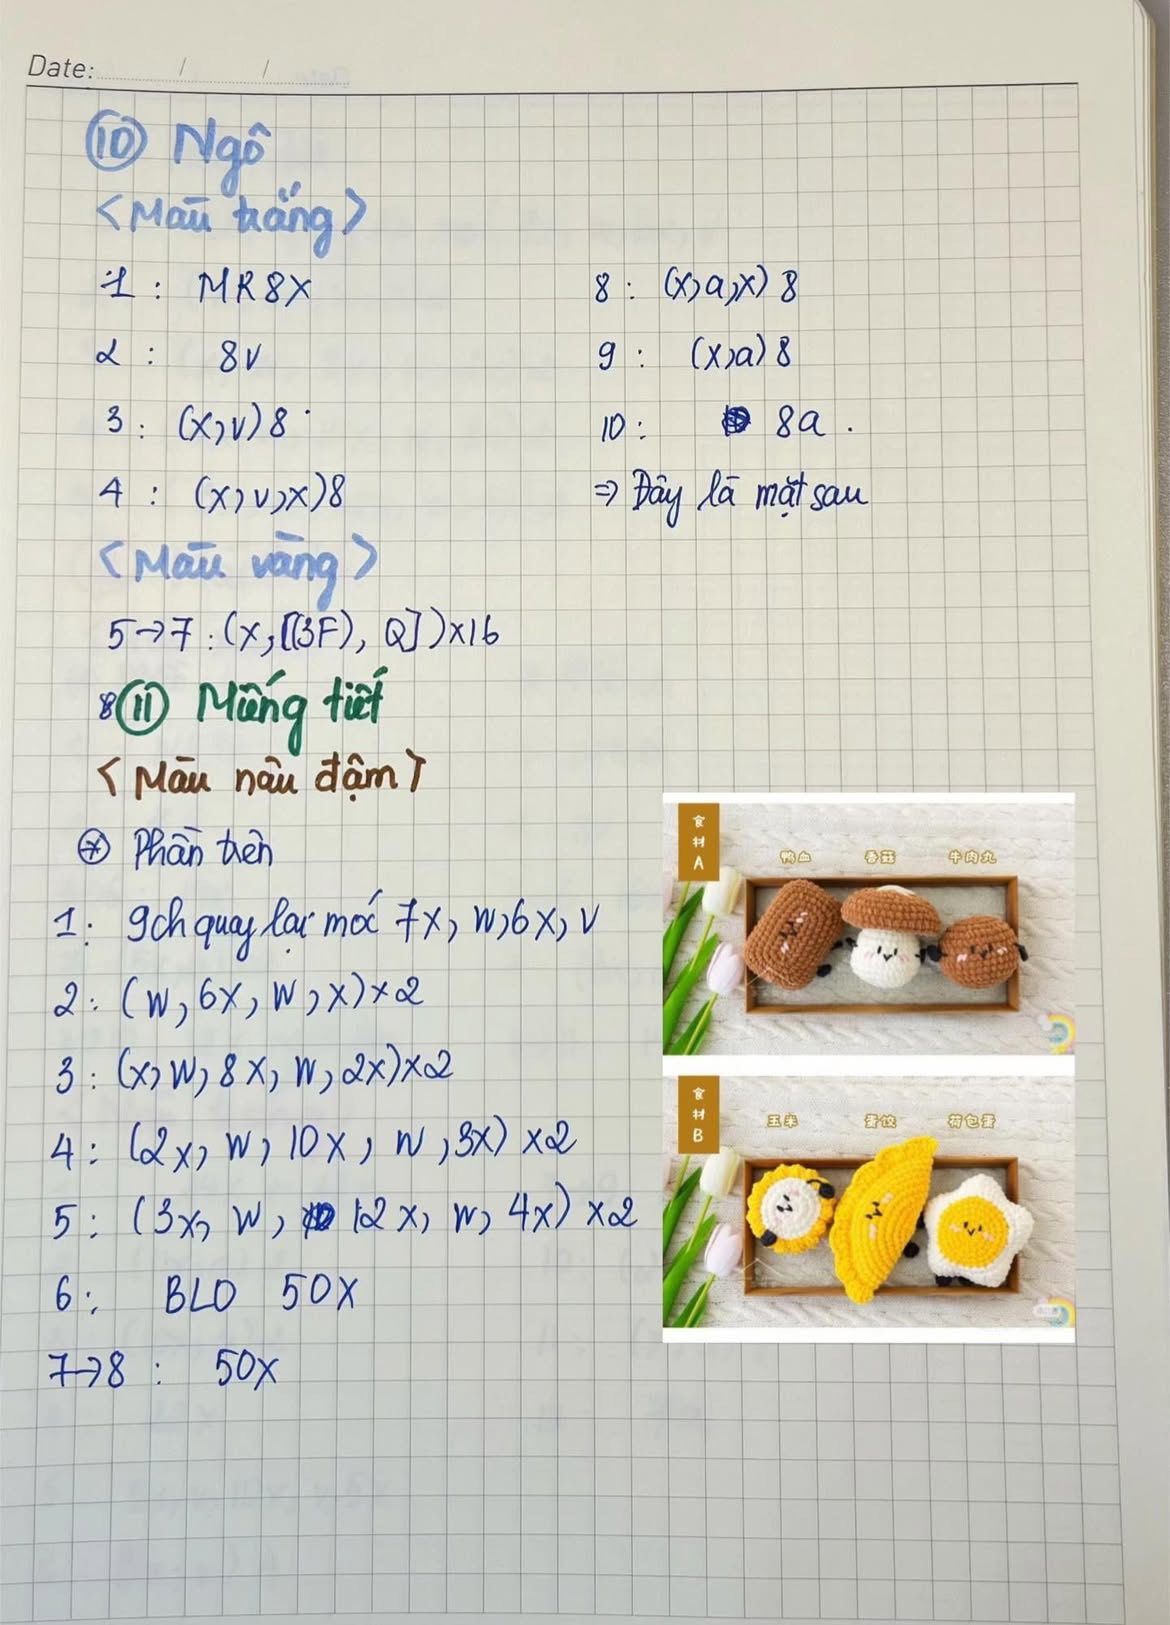 Date: / /
10 Ngô
<Màu trắng>
1 : MR 8X
2 : 8V
3 : (X,V) 8
4 : (X,V,X)8
8 : (X,a,X) 8
9 : (X,a) 8
10 : 8a .
=> Đây là mặt sau
<Màu vàng>
5→7 : (X,[(3F), Q])×16
8 11 Miếng tiết
<Màu nâu đậm>
* Phần trên
1: 9ch quay lại móc 7X, W, 6X, V
2: (W, 6X, W, X)×2
3: (X, W, 8X, W, 2X)×2
4: (2X, W, 10X, W, 3X) ×2
5: (3X, W, 12X, W, 4X) ×2
6: BLO 50X
7→8 : 50X
食材A
鸭血 香菇 牛肉丸
食材B
玉米 蛋饺 荷包蛋